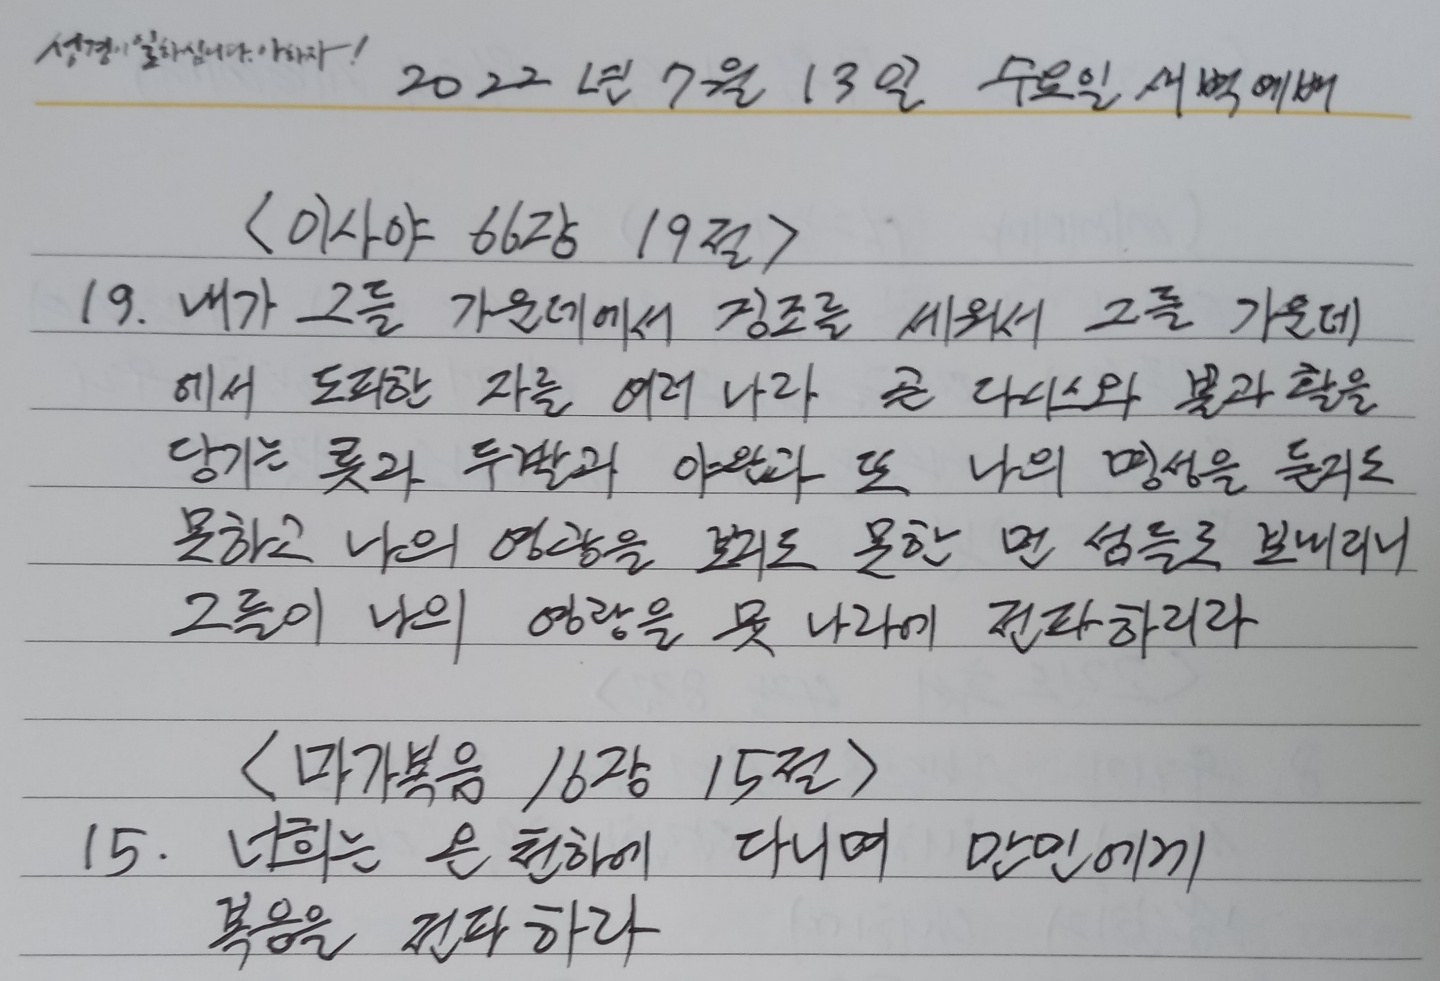 성경이 일하십니다. 아하자!
2022년 7월 13일 수요일 새벽예배
<이사야 66장 19절>
19. 내가 그들 가운데에서 징조를 세워서 그들 가운데
에서 도피한 자를 여러 나라 곧 다시스와 뿔과 활을
당기는 룻과 두발과 야완과 또 나의 명성을 듣지도
못하고 나의 영광을 보지도 못한 먼 섬들로 보내리니
그들이 나의 영광을 뭇 나라에 전파하리라
<마가복음 16장 15절>
15. 너희는 온 천하에 다니며 만민에게
복음을 전파하라